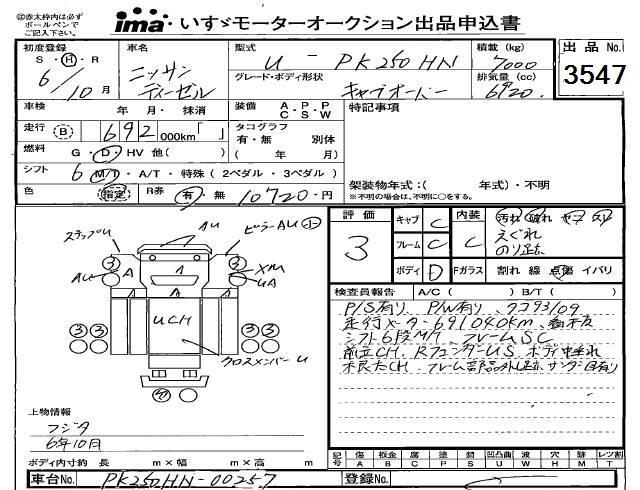 (注)赤太枠内は必ず
ボールペンで
ご記入下さい。
ima いすゞモーターオークション出品申込書
初度登録 車名 型式 積載 (kg) 出品 No.
S・H・R ニッサン U - PK250HN 7000 3547
6/10月 ディーゼル グレード・ボディ形状 排気量 (cc)
キャブオーバー 6920
車検 年 月・抹消 装備 A・P・P 特記事項
C S W
走行 B 692000km「 」 タコグラフ
有・無 別体
燃料 G・D・HV 他( ) ( 年 月)
シフト 6 M/T・A/T・特殊(2ペダル・3ペダル) 架装物年式:( 年式)・不明
色 指定 R券 有・無 10720-円 ※不明の場合は、不明に○をする。
評価 キャブ C 内装 汚れ 破れ ヤブ スリ
3 フレーム C C えぐれ
のり跡
ボディ D Fガラス 割れ 線 点傷 イバリ
ステップU AU ピラーAU 小
3 3
AU A A A XM
UA
A
UCH
3 3 3 3
クロスメンバーU
検査員報告 A/C( ) B/T( )
P/S有り P/W有り、タコ93/09
走行メータ-691040km、
シフト6段M/T フレームSC
前立CH、RフェンダーUS ボデ
木
上物情報
フジタ
6年10日
ボディ内寸約 長 m×幅 m×高 m
記号 傷 A 板金 B 腐 C 塗 P 錆 S 凹凸曲 U 波 W 穴 H 跡 M レツ割 T
車台No. PK250HN-00257 登録No.